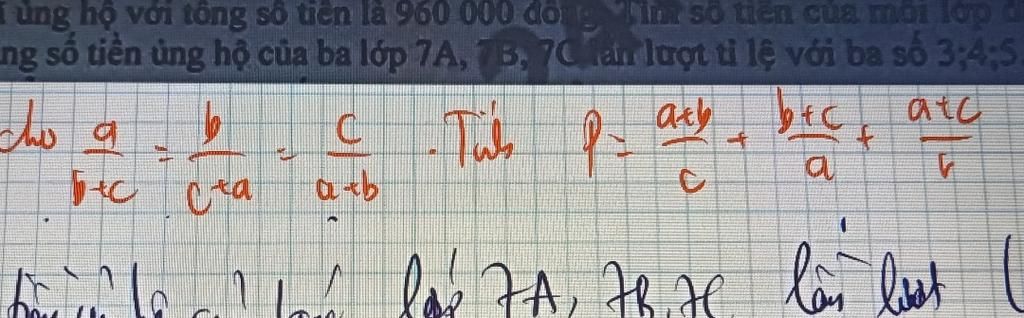 ủng hộ với tổng số tiền là 960 000 đồng. Tính số tiền của mỗi lớp
ng số tiền ủng hộ của ba lớp 7A, 7B, 7C lần lượt tỉ lệ với ba số 3;4;5
cho a/(b+c) = b/(c+a) = c/(a+b) . Tính P = (a+b)/c + (b+c)/a + (a+c)/b
lớp 7A, 7B, 7C lần lượt